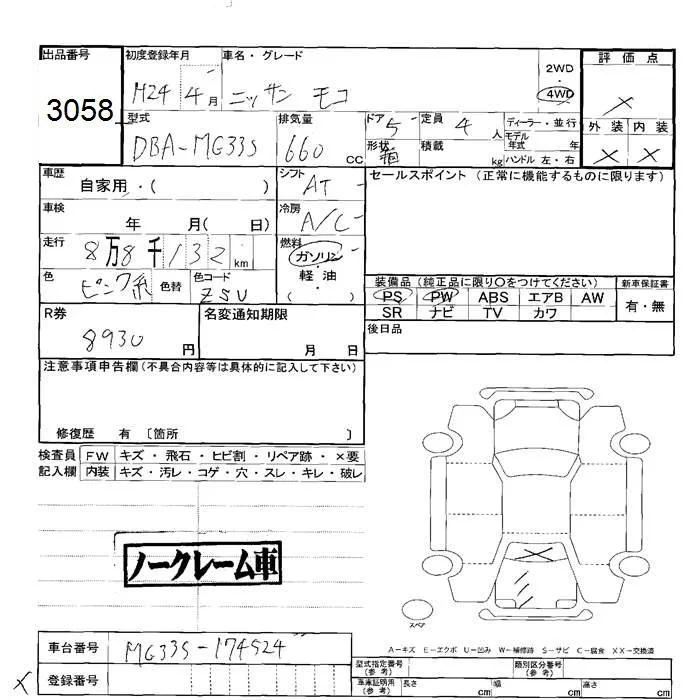 出品番号
3058
初度登録年月
H24 4月
車名・グレード
ニッサン モコ
2WD
4WD
評価点
×
外装 内装
× ×
型式
DBA-MG33S
排気量
660 CC
ドア 5
形状 箱
定員 4 人
積載 kg
ディーラー・並行
モデル年式 年
ハンドル 左・右
車歴
自家用・( )
シフト
AT
セールスポイント (正常に機能するものに限ります)
車検
年 月( 日)
冷房
A/C
走行
8万8千132km
燃料
ガソリン
軽油
( )
色
ピンク系
色替
色コード
ZSU
装備品 (純正品に限り○をつけてください)
新車保証書
PS PW ABS エアB AW
有・無
SR ナビ TV カワ
R券
8930円
名変通知期限
月 日
後日品
注意事項申告欄 (不具合内容等は具体的に記入して下さい)
修復歴 有 〔箇所 〕
検査員 FW キズ・飛石・ヒビ割・リペア跡・×要
記入欄 内装 キズ・汚レ・コゲ・穴・スレ・キレ・破レ
ノークレーム車
スペア
A-キズ E-エクボ U-凹み W-補修跡 S-サビ C-腐食 XX-交換済
車台番号
MG33S-174524
× 登録番号
型式指定番号 (参考)
類別区分番号 (参考)
車庫証明用 (参考)
長さ cm 幅 cm 高さ cm